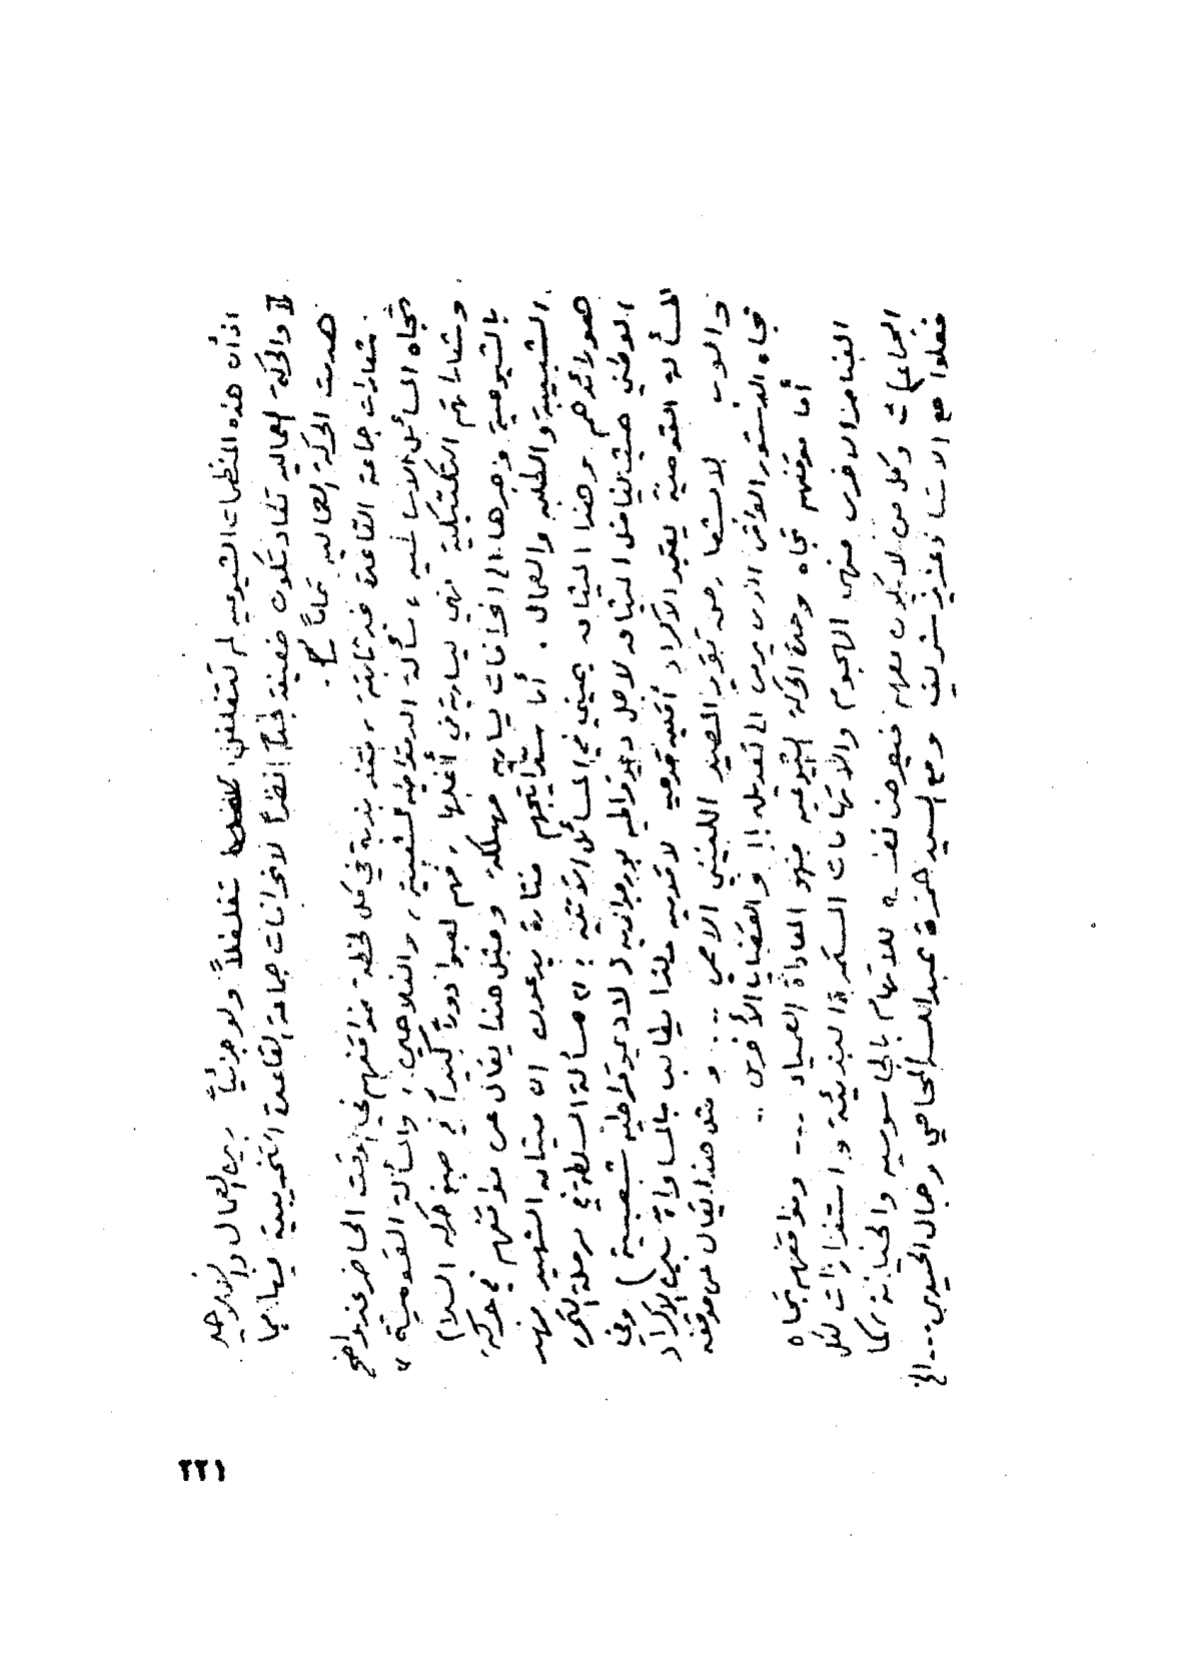 اذ أن هذه المنظمات الشيوعيه لم تتغلغل تغلغلاً ولو جزئياً بين العمال
لا والحركة العماليه تكاد تكون ضعيفة جداً نظراً لانحرافات جماعة القاعدة التخريبية فيها مما
هددت الحركة العماليه تماماً
شعارات جماعة القاعدة غير ثابتة ، متذبذبة في كل لحظة فمواقفهم في الوقت الحاضر غير واضح
تجاه المسائل الاساسية ، مسألة الديمقراطية الشعبية ، والفلاحين ، والمسألة القومية ،
وشعاراتهم التكتيكية فهي يسارية في أغلبها ، فهم لعبوا دوراً كبيراً في حركة السلام
بالشيوعية وجرها الى انحرافات يساريه مهلكة ومثل هذا يقال عن مواقفهم في حركة
الشبيبة والطلبه والعمال . أما ستراتيجهم فتارة يدعون ان ميثاق الشهيد فهد
هو رائدهم وهذا الميثاق يحيي في المسائل الآتية : ١ـ مسألة السلطة في مرحلة التحرر
الوطني حيث يناضل الميثاق لاجل ديمقراطيه بورجوازيه ( لا ديمقراطيه شعبية ) وفي
المسألة القومية يعتبر الاكراد أقليه قوميه لا قوميه ولذا يطالب بالمساواة بين الاكراد
والعرب لا بشعار حق تقرير المصير اللينيني الاممي ... ومثل هذا يقال عن موقفه
تجاه الدستور العراقي الذي يرمي الى تعديله !! والقضايا الأخرى ..
أما موقفهم تجاه وحدة الحركة الشيوعيه فهو المعاداة العمياء ... ومواقفهم تجاه
العناصر الاخرى فهي الهجوم والاتهامات المستمرة البذيئة واستفزازات لكل
الجماعات وكل من لا يكون معهم فيعرض نفسه للاتهام بالجاسوسيه والخيانة ، كما
فعلوا مع الاستاذ عزيز شريف ومع السيد حمزة عبدالله المحامي وجمال الحيدري ... الخ
٢٢١